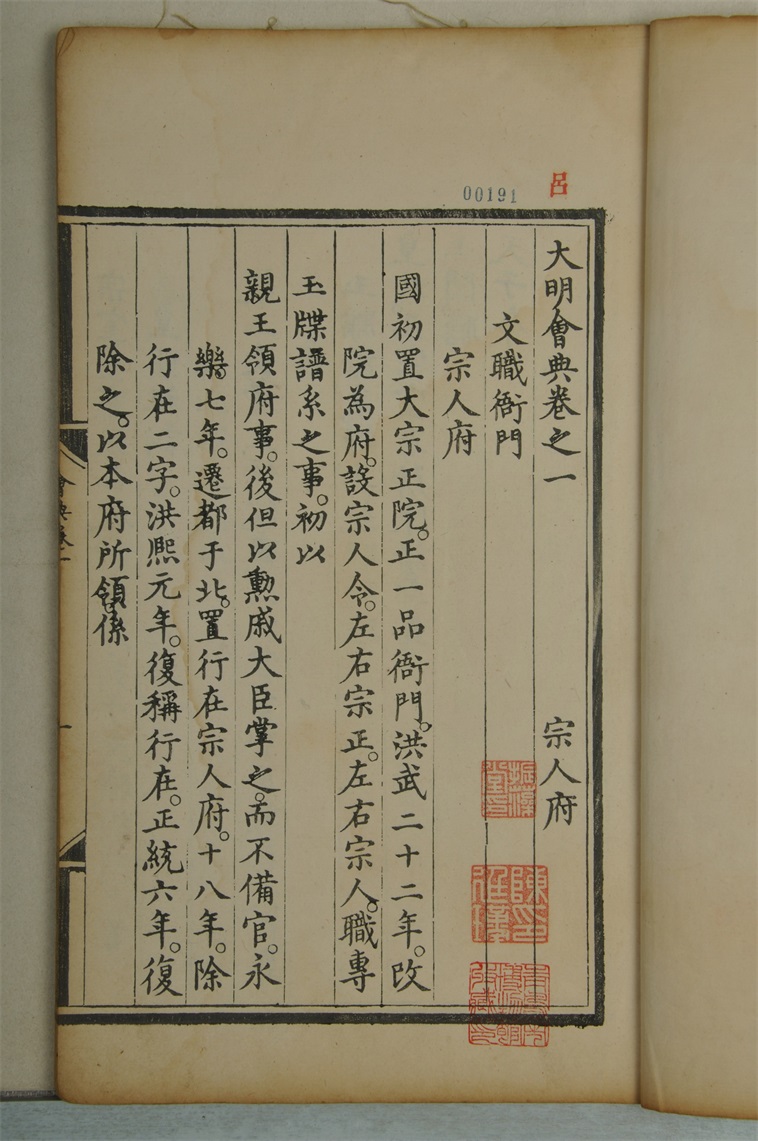 00191
呂
大明會典卷之一 宗人府
文職衙門
宗人府
國初置大宗正院。正一品衙門。洪武二十二年。改
院為府。設宗人令。左右宗正。左右宗人。職專
玉牒譜系之事。初以
親王領府事。後但以勲戚大臣掌之。而不備官。永
樂。七年。遷都于北。置行在宗人府。十八年。除
行在二字。洪熙元年。復稱行在。正統六年。復
除之。以本府所領係
會典卷一
一